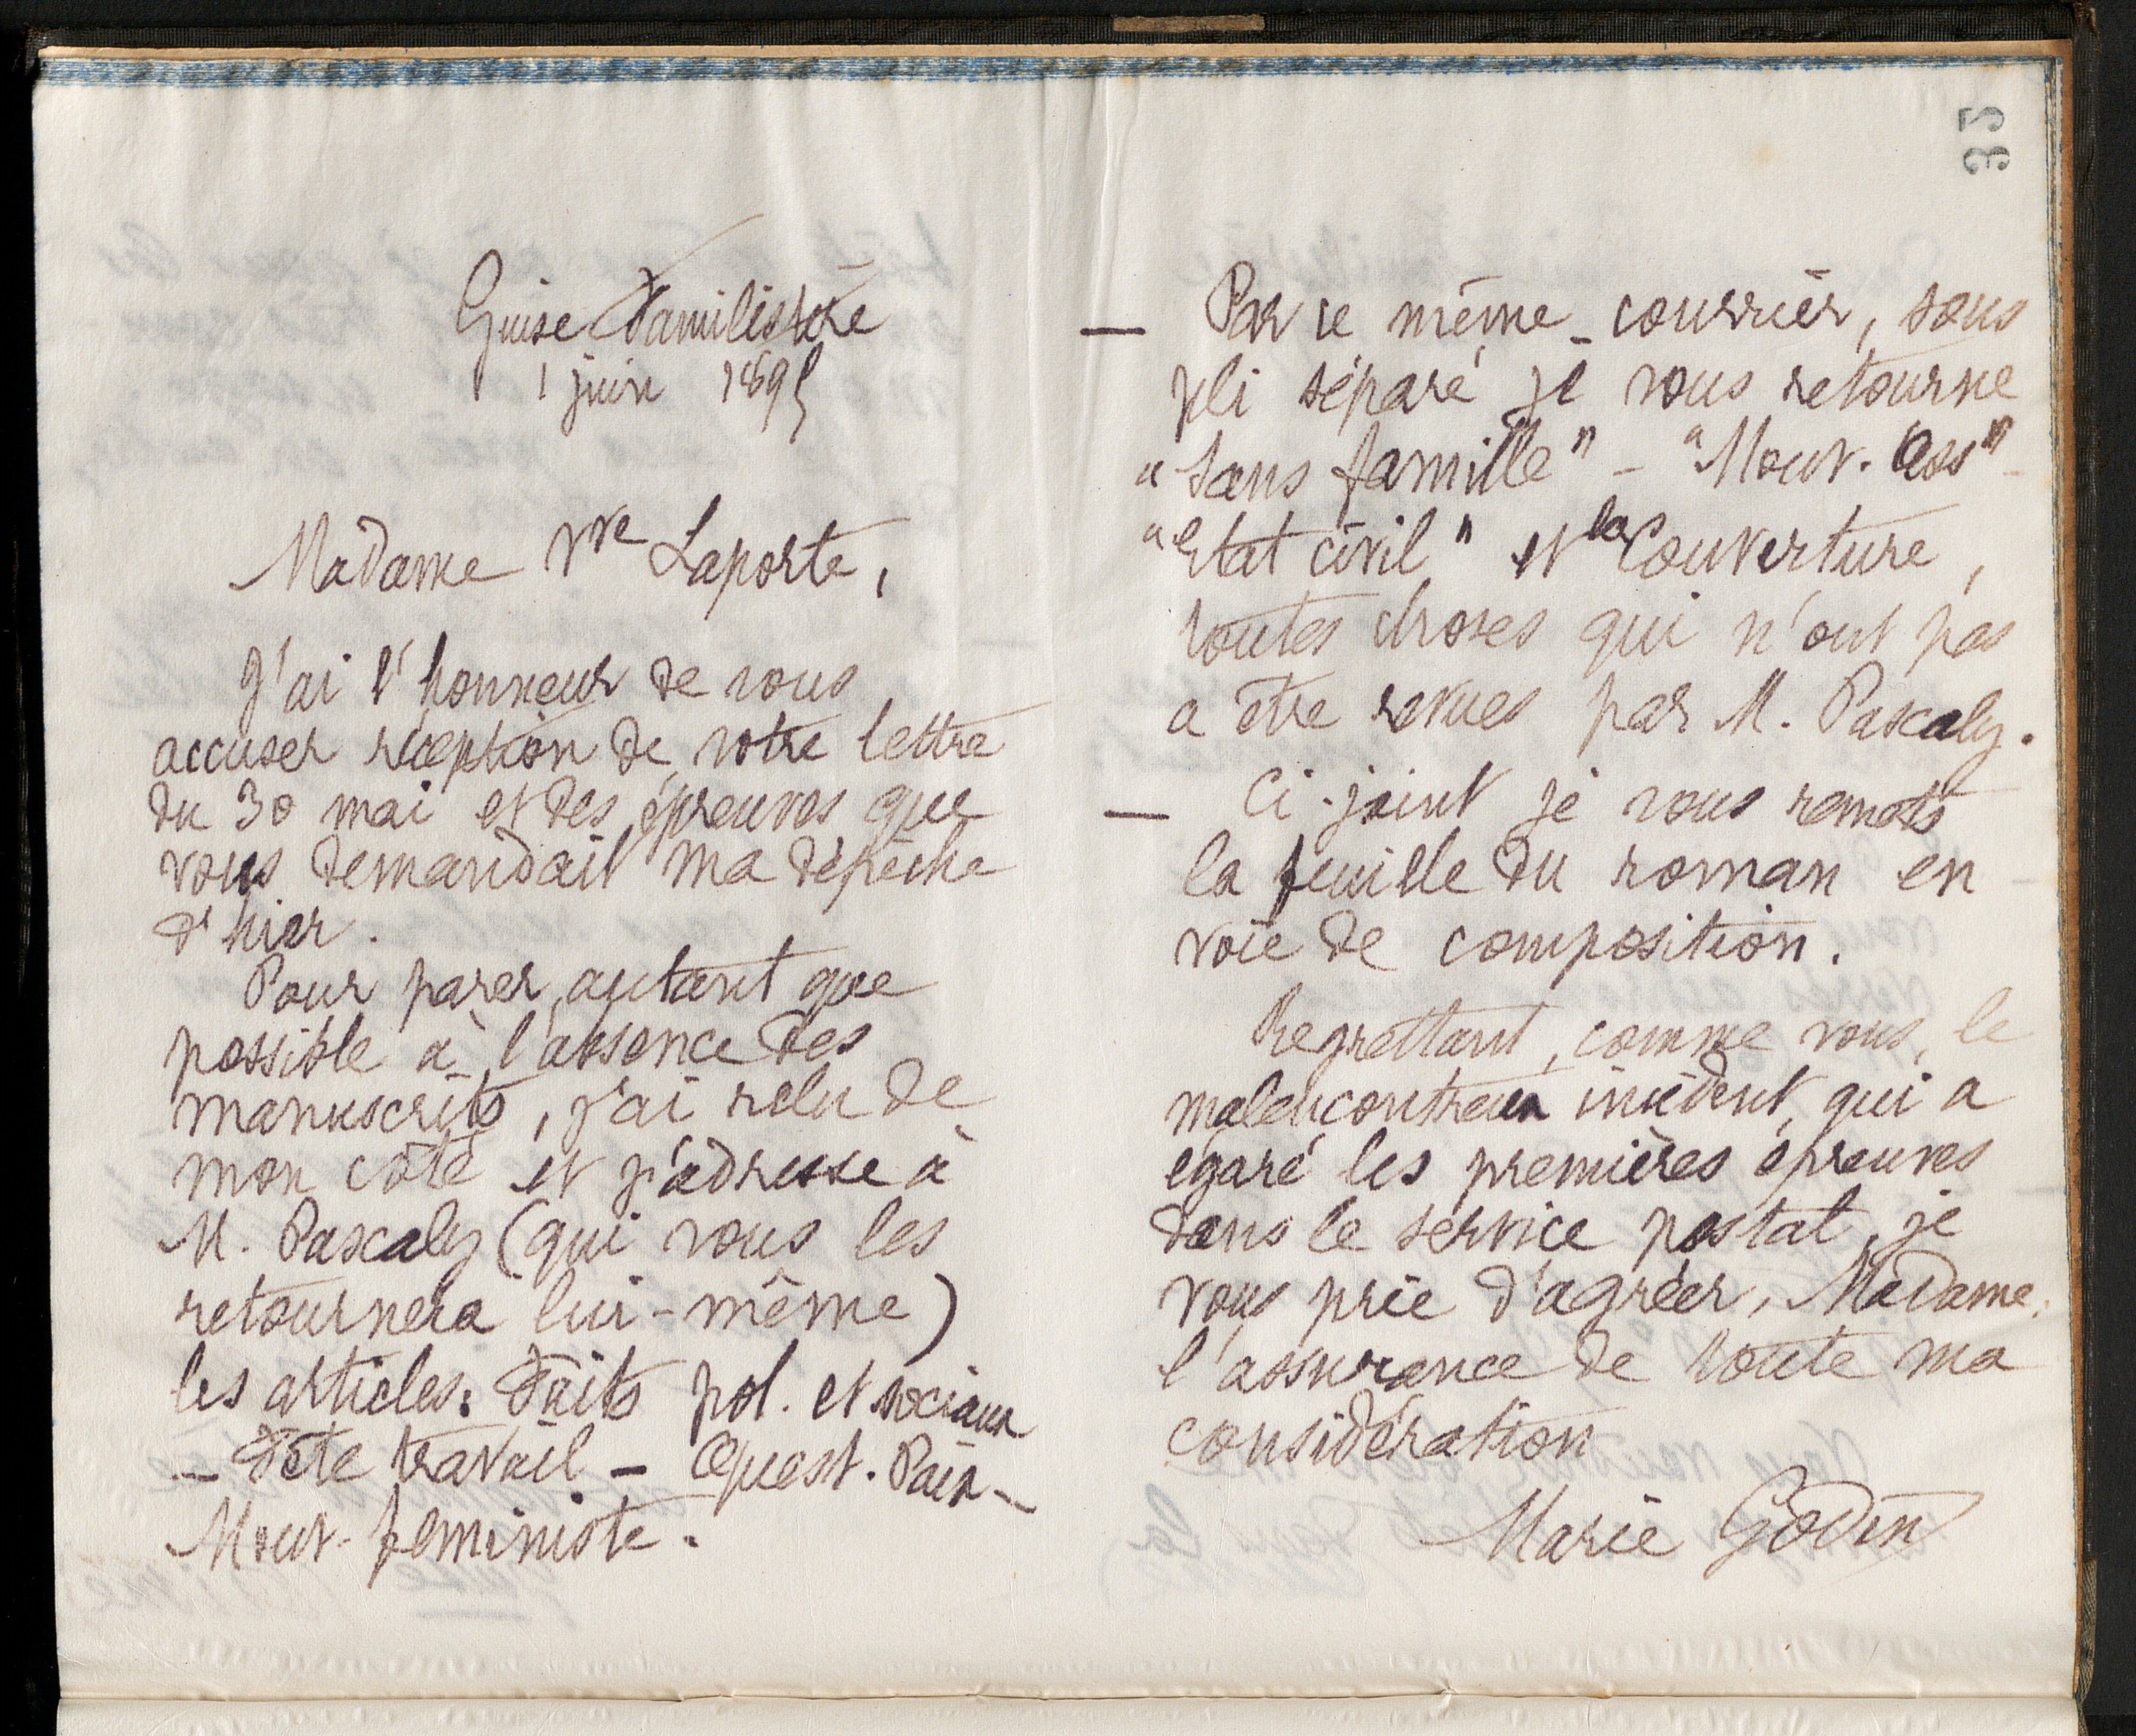 35
Guise Familistère
1 juin 1895
Madame Vve Laporte,
J'ai l'honneur de vous
accuser réception de votre lettre
du 30 mai et des épreuves que
vous demandait ma dépêche
d'hier.
Pour parer autant que
possible à l'absence des
manuscrits, j'ai relu de
mon côté et j'adresse à
M. Pascaly (qui vous les
retournera lui-même)
les articles: Faits pol. et sociaux
— Fête travail — Quest. Paix —
Mouv. féministe.
— Par ce même courrier, sous
pli séparé je vous retourne
"Sans famille" - "Mouv. Ass" -
"Etat civil" et la Couverture,
toutes choses qui n'ont pas
a être revues par M. Pascaly.
— Ci-joint je vous remets
la feuille du roman en
voie de composition.
Regrettant, comme vous, le
malencontreux incident, qui a
égaré les premières épreuves
dans le service postal, je
vous prie d'agréer, Madame,
l'assurance de toute ma
considération
Marie Godin